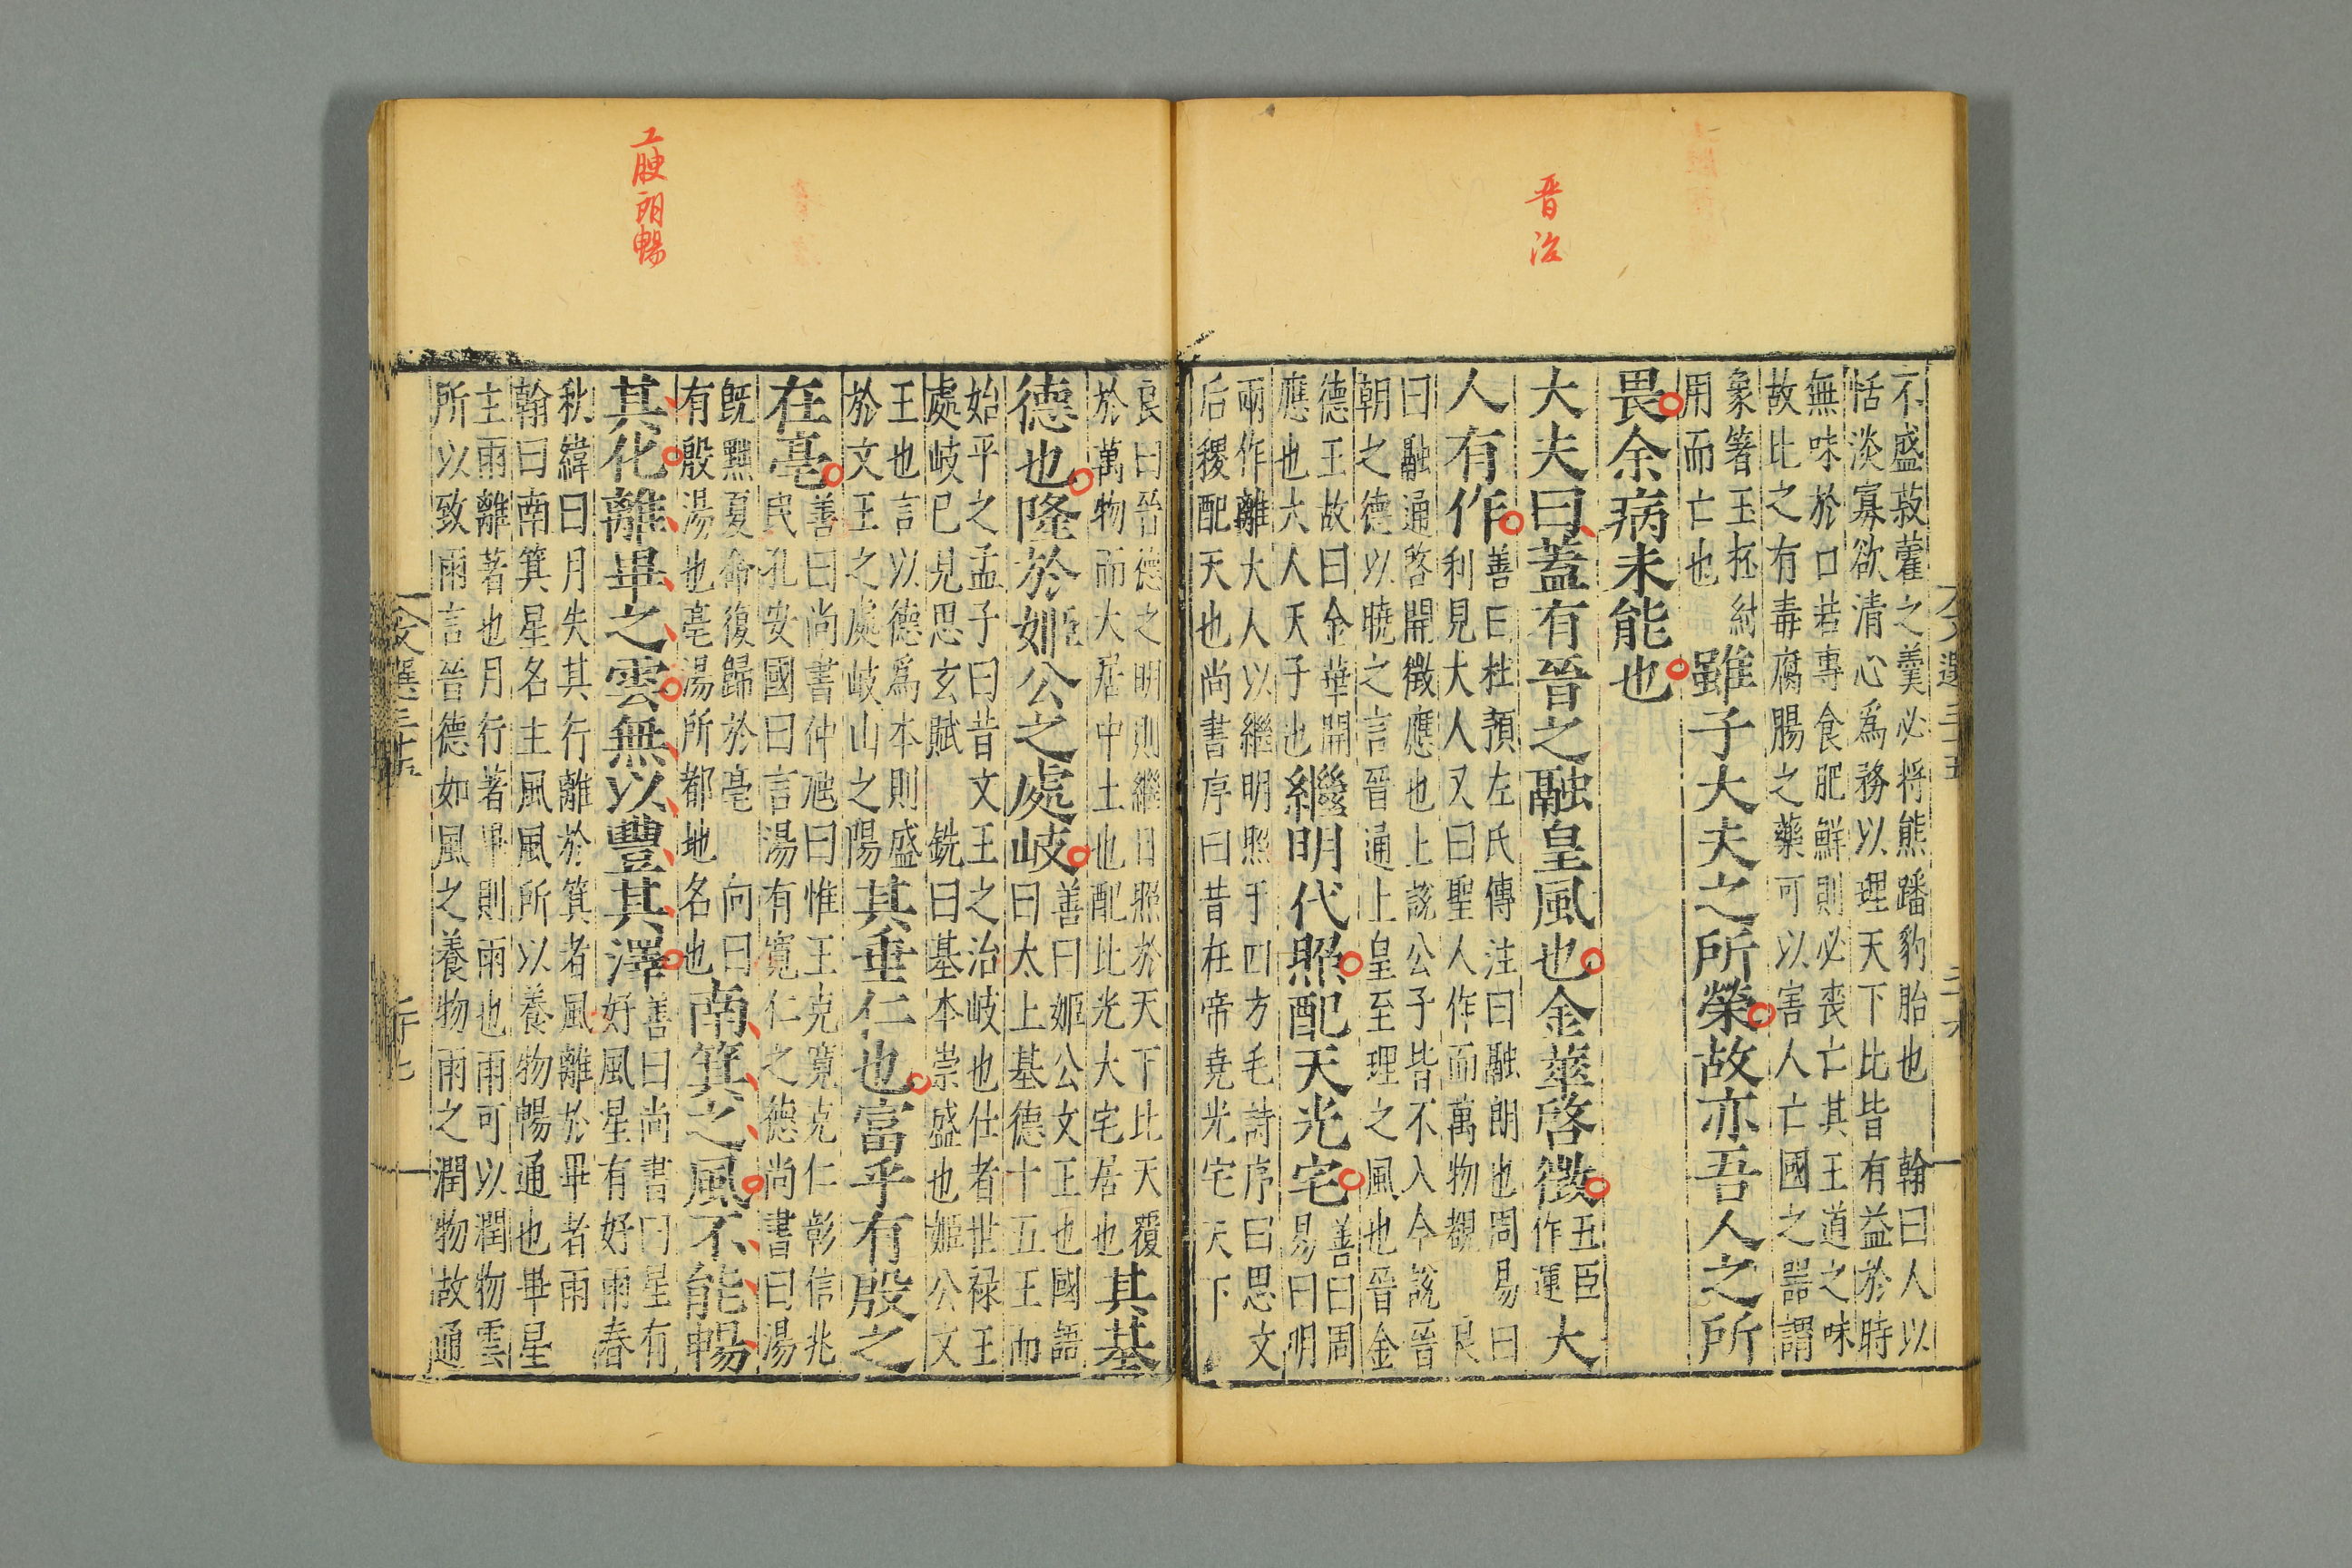 晋治
不盛菽藿之羹必将熊蹯豹胎也 翰曰人以
恬淡寡欲清心爲務以理天下比皆有益於時
無味於口若專食肥鮮則必喪亡其王道之味
故比之有毒腐腸之藥可以害人亡國之器謂
象箸玉杯紂
用而亡也
雖子大夫之所榮故亦吾人之所
畏余病未能也
大夫曰蓋有晉之融皇風也金華啓徵
五臣
作運
大
人有作
善曰杜預左氏傳注曰融朗也周易曰
利見大人又曰聖人作而萬物覩 良
曰融通啓開徵應也上説公子皆不入今說晉
朝之德以曉之言晉通上皇至理之風也晉金
德王故曰金華開
應也大人天子也
繼明代照配天光宅
善曰周
易曰明
兩作離大人以繼明照于四方毛詩序曰思文
后稷配天也尚書序曰昔在帝堯光宅天下
工腴朗暢
良曰晉德之明則繼日照於天下比天覆
於萬物而大居中土也配比光大宅居也
其基
德也隆於姬公之處岐
善曰姬公文正也國語
曰太上基德十五王而
始平之孟子曰昔文王之治岐也仕者世禄王
處岐已見思玄賦 銑曰基本崇盛也姬公文
王也言以德爲本則盛
於文王之處岐山之陽
其垂仁也富乎有殷之
在亳
善曰尚書仲虺曰惟王克寬克仁彰信兆
民孔安國曰言湯有寬仁之德尚書曰湯
旣黜夏命復歸於亳 向曰
有殷湯也亳湯所都地名也
南箕之風不能暢
其化離畢之雲無以豐其澤
善曰尚書曰星有
好風星有好雨春
秋緯曰月失其行離於箕者風離於畢者雨
翰曰南箕星名主風風所以養物暢通也畢星
主雨離著也月行著畢則雨也雨可以潤物雲
所以致雨言晉德如風之養物雨之潤物故通